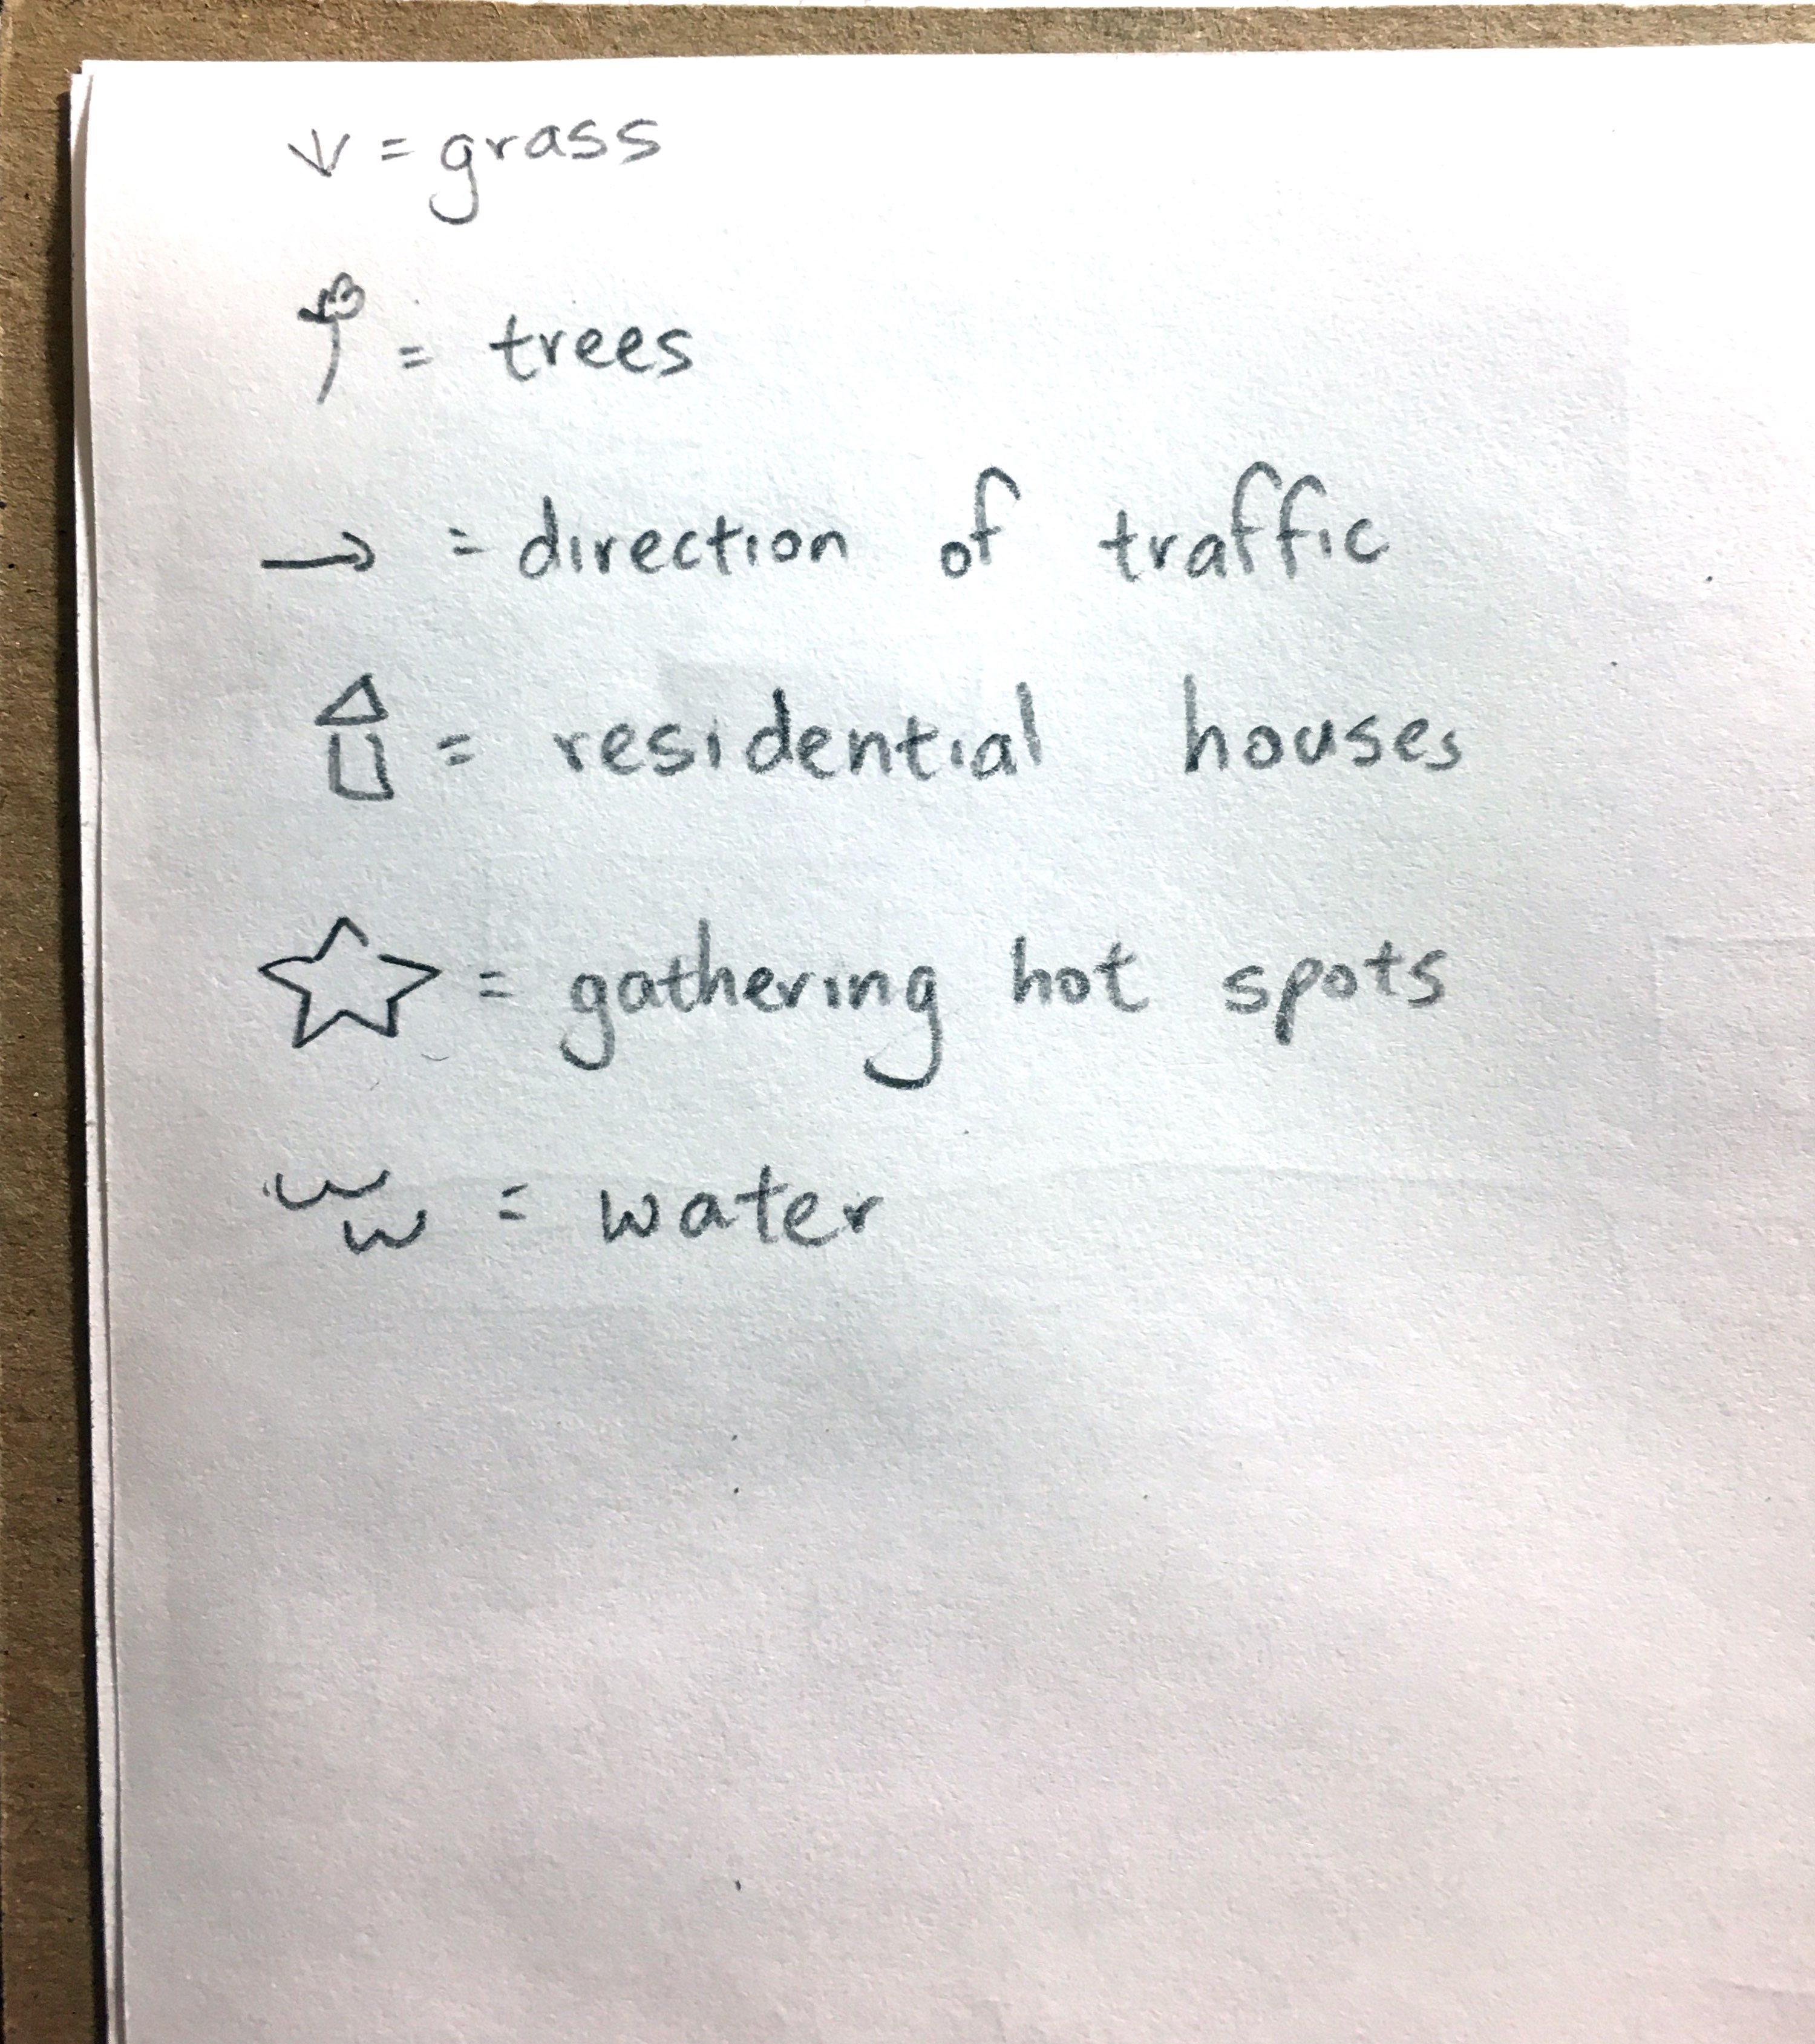 = grass
= trees
→ = direction of traffic
= residential houses
☆ = gathering hot spots
= water